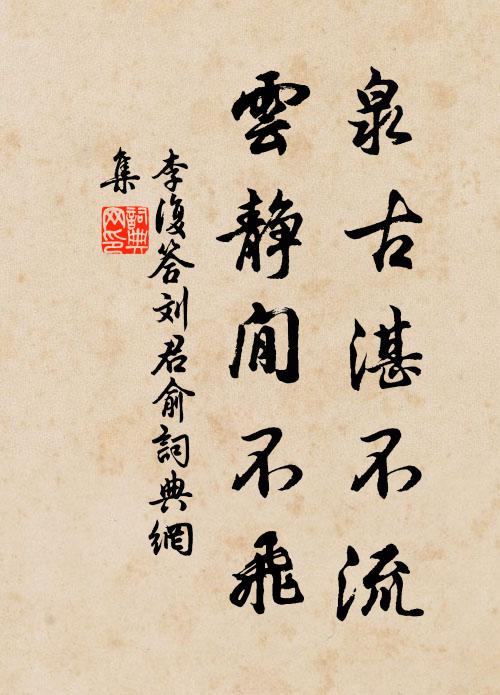 泉古湛不流
雲静閒不飛
李復答刘君俞詞典網
集
詞典
网印